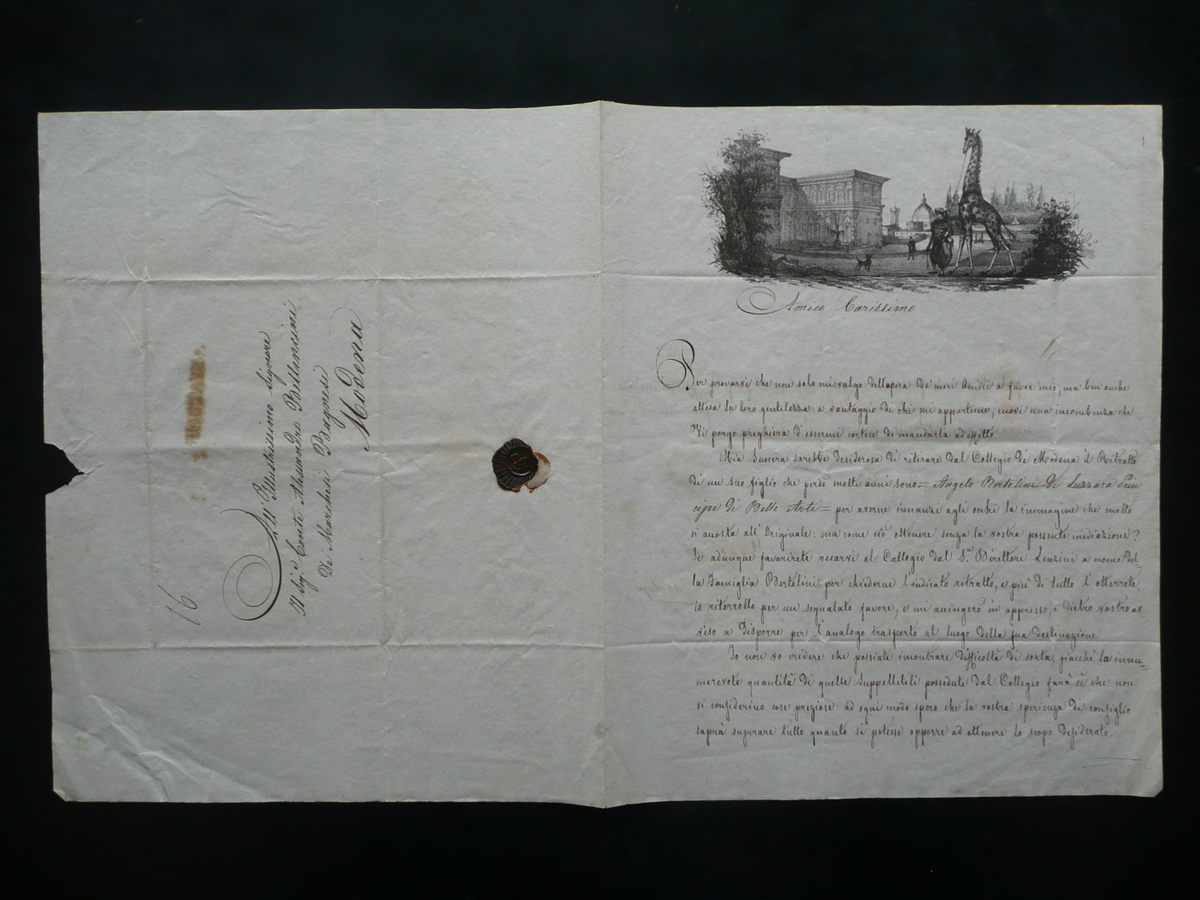 All'Illustrissimo Signore
Il Sig. Conte Alessandro Bellencini
De Marchesi Bagnesi
Modena
16
1
Amico Carissimo
Per provarvi che non solo mi valgo dell'opera de' miei Amici a favor mio, ma ben anche
attesa la loro gentilezza a vantaggio di chi mi appartiene, eccovi una incombenza che
Vi porgo preghiera d'essermi cortese di mandarla ad effetto.
Mia Suocera sarebbe desiderosa di ritirare dal Collegio di Modena il Ritratto
di un suo figlio che perdè molti anni sono = Angelo Bertolini di Luzzara Prin-
cipe di Belle Arti = per averne innanzi agli occhi la immagine che molto
si accosta all'Originale: ma come ciò ottenere senza la vostra possente mediazione?
Se adunque favorirete recarvi al Collegio dal Sr. Direttore Lenzini a nome del
la Famiglia Bertolini per chiederne l'indicato retratto, e più di tutto l'otterrete,
io riterrollo per un segnalato favore, e mi accingerò in appresso, e dietro vostro av
viso a disporre per l'analogo trasporto al luogo della sua destinazione
Io non vo credere che possiate incontrare difficoltà di sorta, giacchè la innu-
merevole quantità di quelle Suppellettili possedute dal Collegio farà sì che non
si considerino cose preziose: ad ogni modo spero che la vostra sperienza di consiglio
saprà superare tutto quanto si potesse opporre ad ottenere lo scopo desiderato.